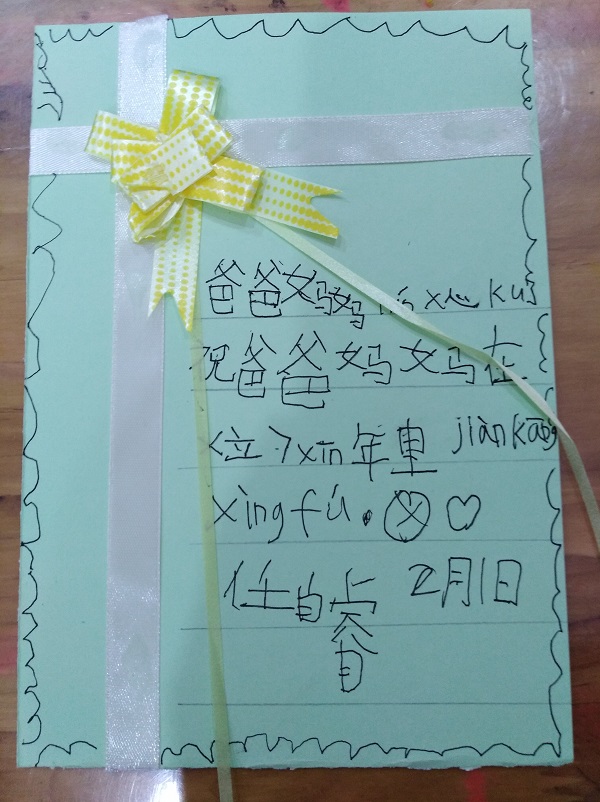 爸爸妈妈 的 x心 ku
祝爸爸妈妈在
<立>xīn年里 jiànkāng
xìngfú.♡
任自睿 2月1日